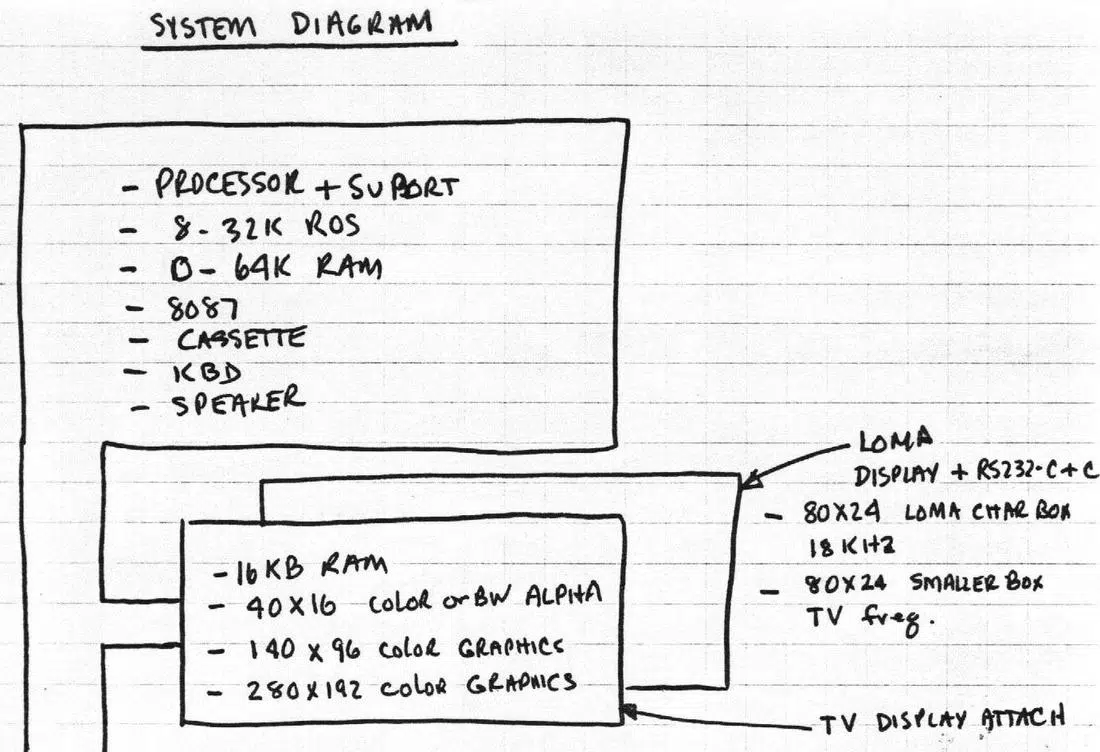 SYSTEM DIAGRAM
- PROCESSOR + SUPPORT
- 8-32K ROS
- 0-64K RAM
- 8087
- CASSETTE
- KBD
- SPEAKER
LOMA
DISPLAY + RS232-C + C
- 80X24 LOMA CHAR BOX
18 KHZ
- 80X24 SMALLER BOX
TV freq.
- 16KB RAM
- 40X16 COLOR or BW ALPHA
- 140 X 96 COLOR GRAPHICS
- 280X192 COLOR GRAPHICS
TV DISPLAY ATTACH